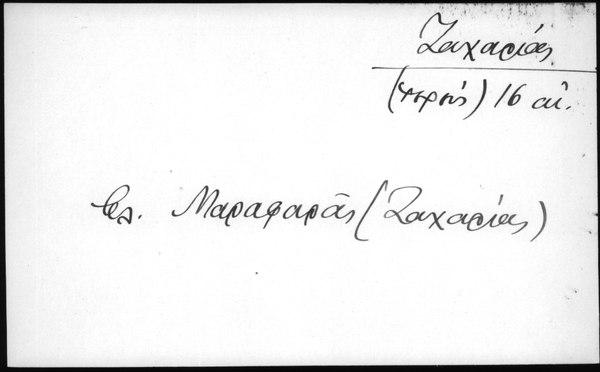 Ζαχαρίας
(ιερεύς) 16 αἰ.
Βλ. Μαραφαρᾶς (Ζαχαρίας)